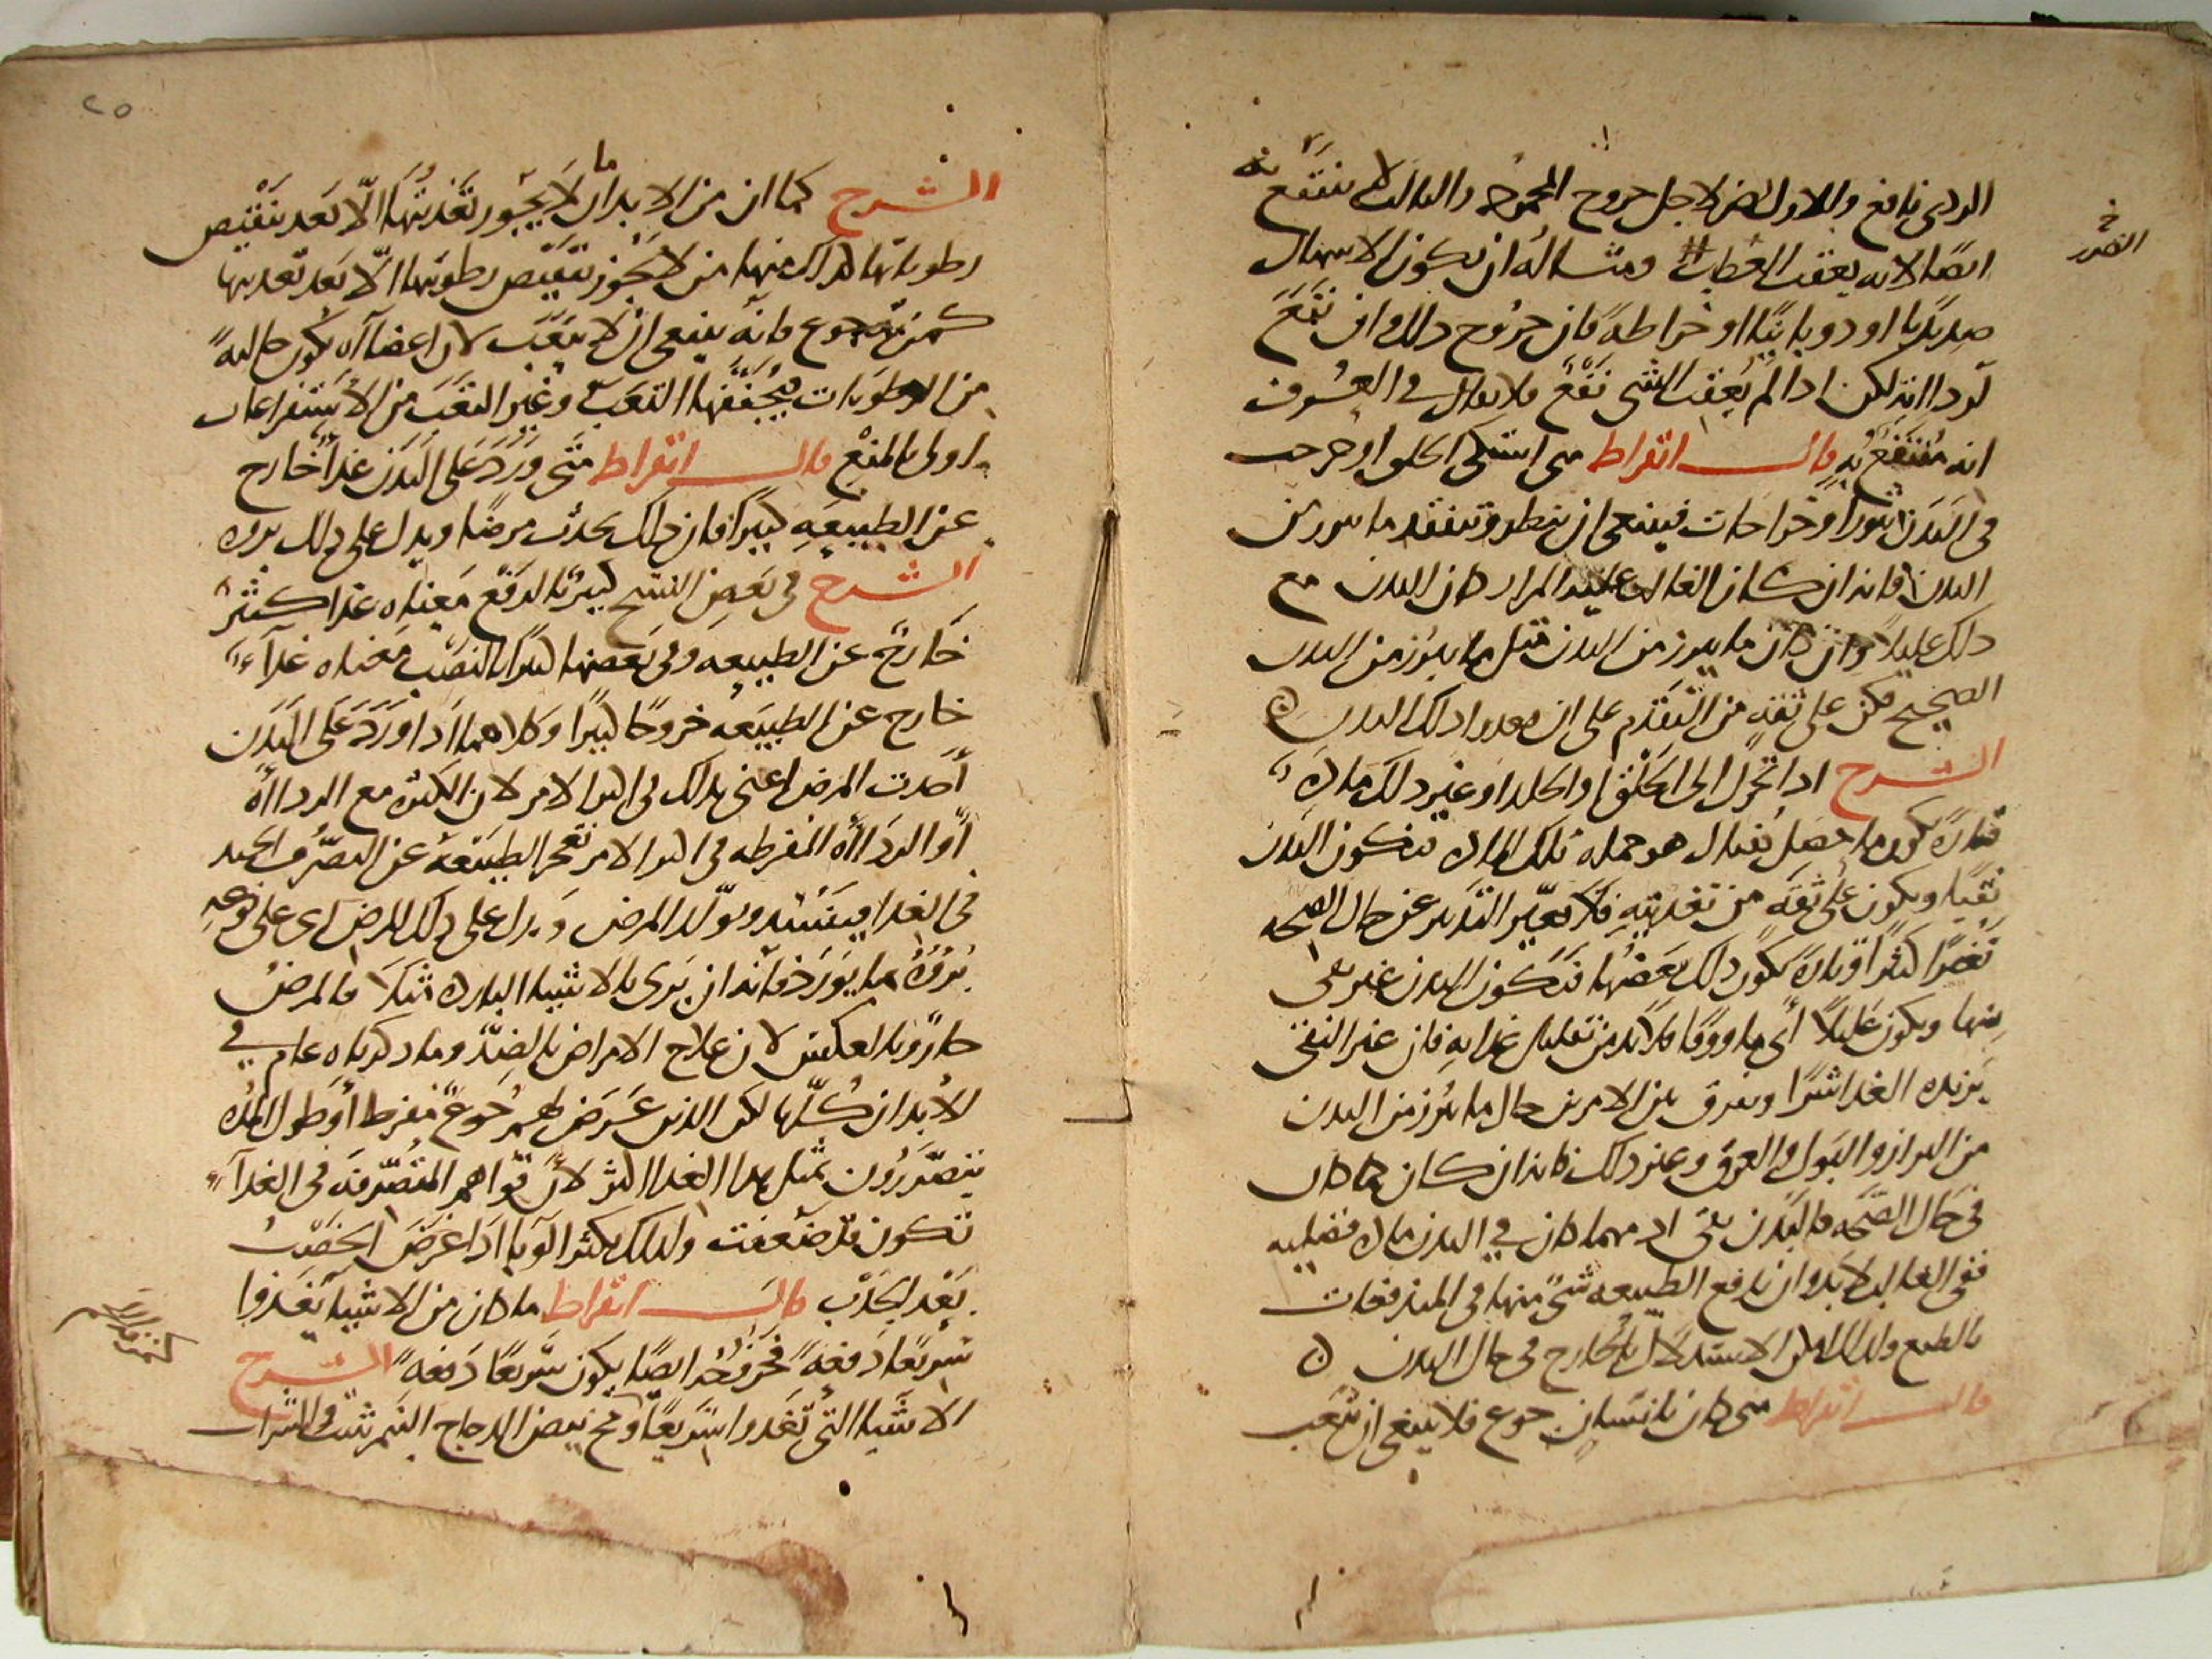 الردى نافع وللاول لاجل خروج والثانى لا ينتفع به
الضرر
ايضًا لانه يعقب العطب ومثاله ان يكون الاسهال
صديديا او ذوبانيًا او خراطة فان خروج ذلك وان نفع
لرداته لكن اذا لم يعقب الشى نفع فلا يقال فى العرف
انه منتفع به قال ابقراط متى اشتكى الحلق او خرجت
فى البدن بثورا وخراجات فينبغى ان ينظر وتتفقد ما يبرز من
البدن فانه ان كان الغالب عليه المرار كان البدن مع
ذلك عليلا وان كان ما يبرز من البدن مثل ما يبرز من البدن
الصحيح فكن على ثقة من التقدم على ان تغدوا ذلك البدن
الشرح اذا تحرك الى الحلق او الجلد او غير ذلك مادة
فتارة يكون ما حصل هناك هو جملة تلك المادة فيكون البدن
نقيًا ويكون على ثقة من تغذيته فلا تغير التدبير عن حال الصحه
تغيرًا كثيرًا وتارة يكون ذلك بعضها فيكون البدن غير نقى
منها ويكون عليلًا اى ماووفا فلا بد من تقليل غذايه فان غير النقى
يزيده الغدا شرًا ويفرق بين الامرين حال ما يبرز من البدن
من البراز والبول والعرق وغير ذلك فانه ان كان كما كان
فى حال الصحه فالبدن نقى اذ مهما كان فى البدن مادة فضليه
ففى الغالب لا بد وان يدفع الطبيعه شئ منها فى المندفعات
بالطبع ولذلك الاستدلال بالخارج فى حال البدن
قال ابقراط متى كان بانسان جوع فلا ينبغى ان يتعب
٢٥
الشرح كما ان من الابدان ما لا يجوز تغذيتها الا بعد تنقيص
رطوباتها كذلك منها من لا يجوز تنقيص رطوبتها الا بعد تغذيتها
كمن به جوع فانه ينبغى ان لا يتعب لان اعضاه يكون خاليه
من الرطوبات فيجففها التعب وغير التعب من الاستفراغات
اولى بالمنع قال ابقراط متى ورد على البدن غذا خارج
عن الطبيعه كثيرا فان ذلك يحدث مرضًا ويدل على ذلك بروه
الشرح فى بعض النسخ كثير بالرفع معناه غذا كثير
خارج عن الطبيعه وفى بعضها كثيرًا بالنصب معناه غذاء
خارج عن الطبيعه خروجًا كثيرًا وكلاهما اذا ورد على البدن
احدث المرض اعنى بذلك فى اكثر الامر لان الكثرة مع الرداة
او الرداة المفرطه فى اكثر الامر تعجز الطبيعة عن التصرف الجيد
فى الغذا فيفسد ويولد المرض ويدل على ذلك المرض اى على نوعه
بروه ما يورد فانه ان برى بالاشيا الباردة مثلا فالمرض
حار وبالعكس لان علاج الامراض بالضد وما ذكرناه عام فى
الابدان كلها لكن الذين عرض لهم جوع مفرط او طول المده
يتضررون بمثل هذا الغذا اكثر لان قواهم المتصرفة فى الغذاء
تكون قد ضعفت ولذلك يكثر الوبا اذا عرض الخصب
بعد الجدب قال ابقراط ما كان من الاشيا يغذوا
سريعًا دفعة فخروجه ايضًا يكون سريعًا دفعة الشرح
الاشيا التى تغذوا سريعًا مح بيض الدجاج النمرشت والشراب